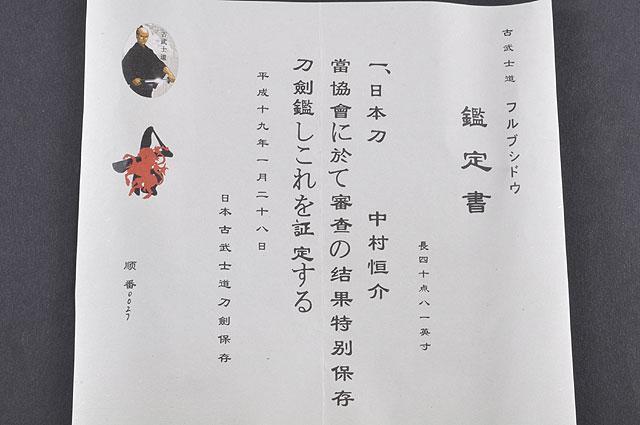 古武士道 フルブシドウ
鑑定書
長四十点八一英寸
一、日本刀 中村恒介
當協會に於て審查の结果特别保存
刀劍鑑しこれを証定する
平成十九年一月二十八日
日本古武士道刀劍保存
古武士道
顺番0027